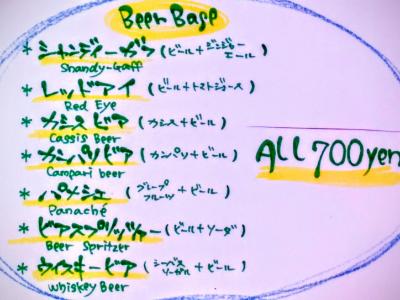 Beer Base
* シャンディーガフ (ビール+ジンジャーエール)
Shandy-Gaff
* レッドアイ (ビール+トマトジュース)
Red Eye
* カシスビア (カシス+ビール)
Cassis Beer
* カンパリビア (カンパリ+ビール)
Campari beer
* パナシェ (グレープフルーツ+ビール)
Panaché
* ビアスプリッツァー (ビール+ソーダ)
Beer Spritzer
* ウィスキービア (+ビール)
Whiskey Beer
ALL 700yen